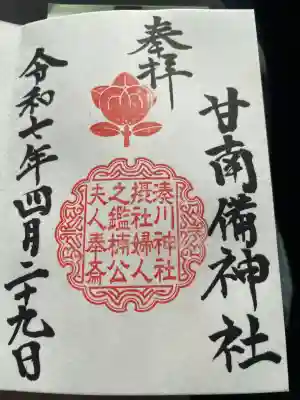 甘南備神社
奉拝
湊川神社
摂社婦人
之鑑楠公
夫人奉斎
令和七年四月二十九日